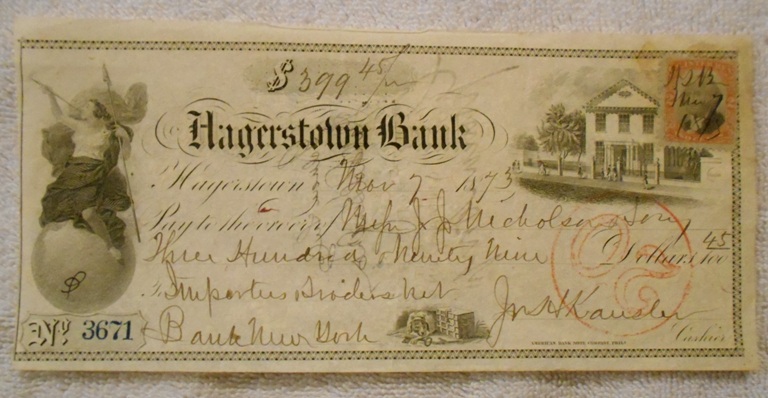 $399 45/100
Hagerstown Bank
Hagerstown, Nov 7 1873
Pay to the order of Mess J. J. Nicholson & Sons
Three Hundred & ninety nine 45 Dollars, 100
To Importers & Traders Nat
Bank New York
Jno H Kausler
Cashier
No 3671
AMERICAN BANK NOTE COMPANY